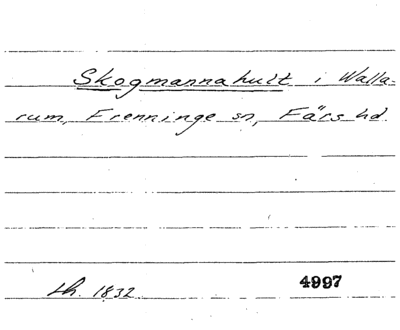 Skogmannahult i Walla-
rum, Frenninge sn, Färs hd.
Lh. 1832
4997